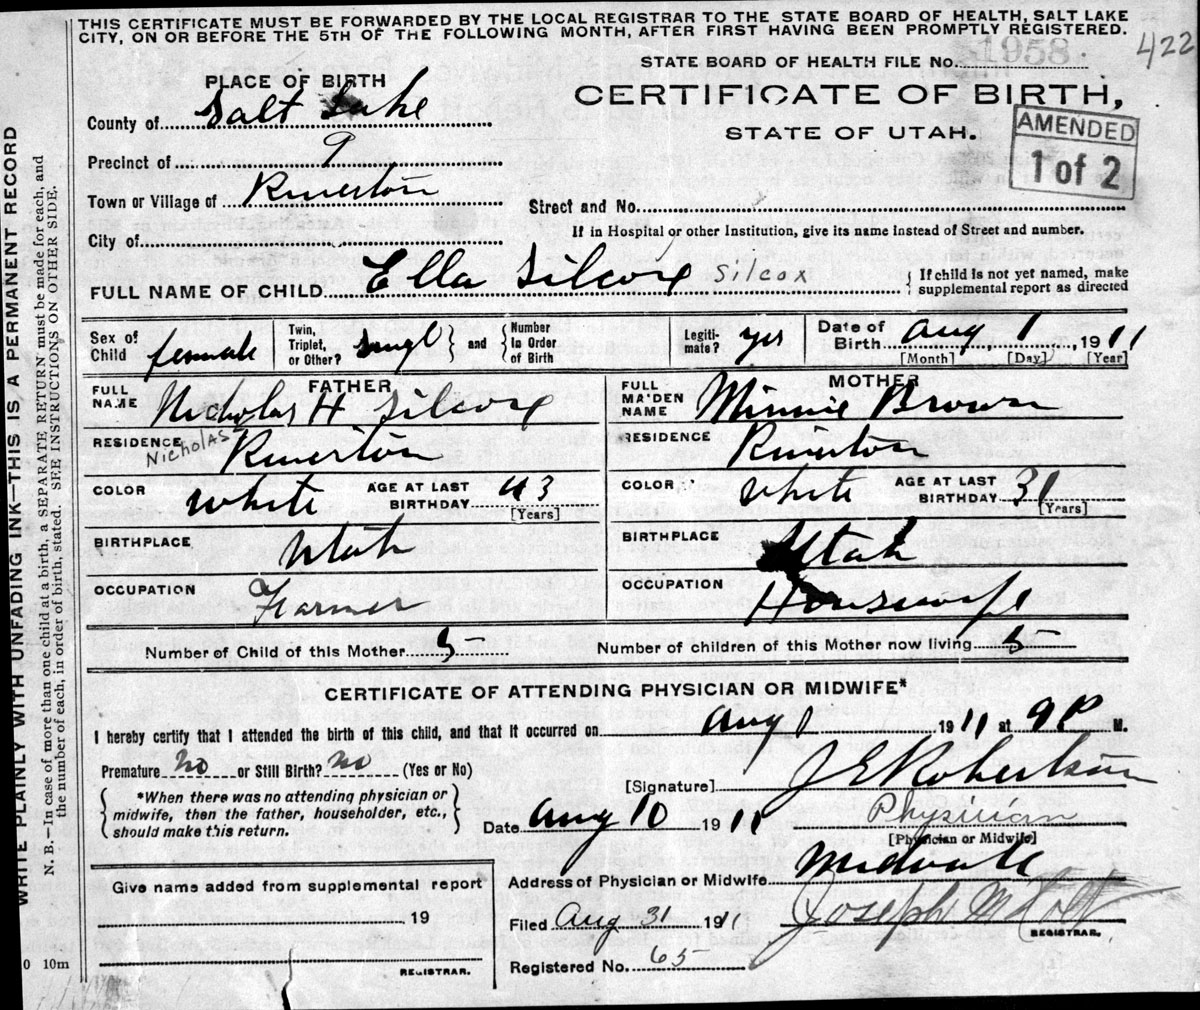 THIS CERTIFICATE MUST BE FORWARDED BY THE LOCAL REGISTRAR TO THE STATE BOARD OF HEALTH, SALT LAKE
CITY, ON OR BEFORE THE 5TH OF THE FOLLOWING MONTH, AFTER FIRST HAVING BEEN PROMPTLY REGISTERED.
422
STATE BOARD OF HEALTH FILE No. 1958
PLACE OF BIRTH
CERTIFICATE OF BIRTH,
STATE OF UTAH.
AMENDED
1 of 2
County of Salt Lake
Precinct of 9
Town or Village of Riverton
Street and No.
City of
If in Hospital or other Institution, give its name instead of Street and number.
FULL NAME OF CHILD Ella Silcox Silcox
{ If child is not yet named, make
supplemental report as directed
Sex of Child female
Twin, Triplet, or Other? Singl } and { Number In Order of Birth
Legitimate? yes
Date of Birth Aug 1, 1911
[Month] [Day] [Year]
FATHER
FULL NAME Nicholas H Silcox
Nicholas
RESIDENCE Riverton
COLOR White AGE AT LAST BIRTHDAY 43
[Years]
BIRTHPLACE Utah
OCCUPATION Farmer
MOTHER
FULL MAIDEN NAME Minnie Brown
RESIDENCE Riverton
COLOR White AGE AT LAST BIRTHDAY 31
[Years]
BIRTHPLACE Utah
OCCUPATION Housewife
Number of Child of this Mother 5 Number of children of this Mother now living 5
CERTIFICATE OF ATTENDING PHYSICIAN OR MIDWIFE*
I hereby certify that I attended the birth of this child, and that it occurred on Aug 1 1911 at 9 P M.
Premature No or Still Birth? No (Yes or No)
[Signature] J E Robertson
{ *When there was no attending physician or
midwife, then the father, householder, etc.,
should make this return. }
Date Aug 10 1911
Physician
[Physician or Midwife]
Address of Physician or Midwife Midvale
Give name added from supplemental report
19
REGISTRAR.
Filed Aug 31 1911
Joseph M Holt
REGISTRAR.
Registered No. 65
WRITE PLAINLY WITH UNFADING INK—THIS IS A PERMANENT RECORD
N. B.—In case of more than one child at a birth, a SEPARATE RETURN must be made for each, and
the number of each, in order of birth, stated. SEE INSTRUCTIONS ON OTHER SIDE.
0 10m